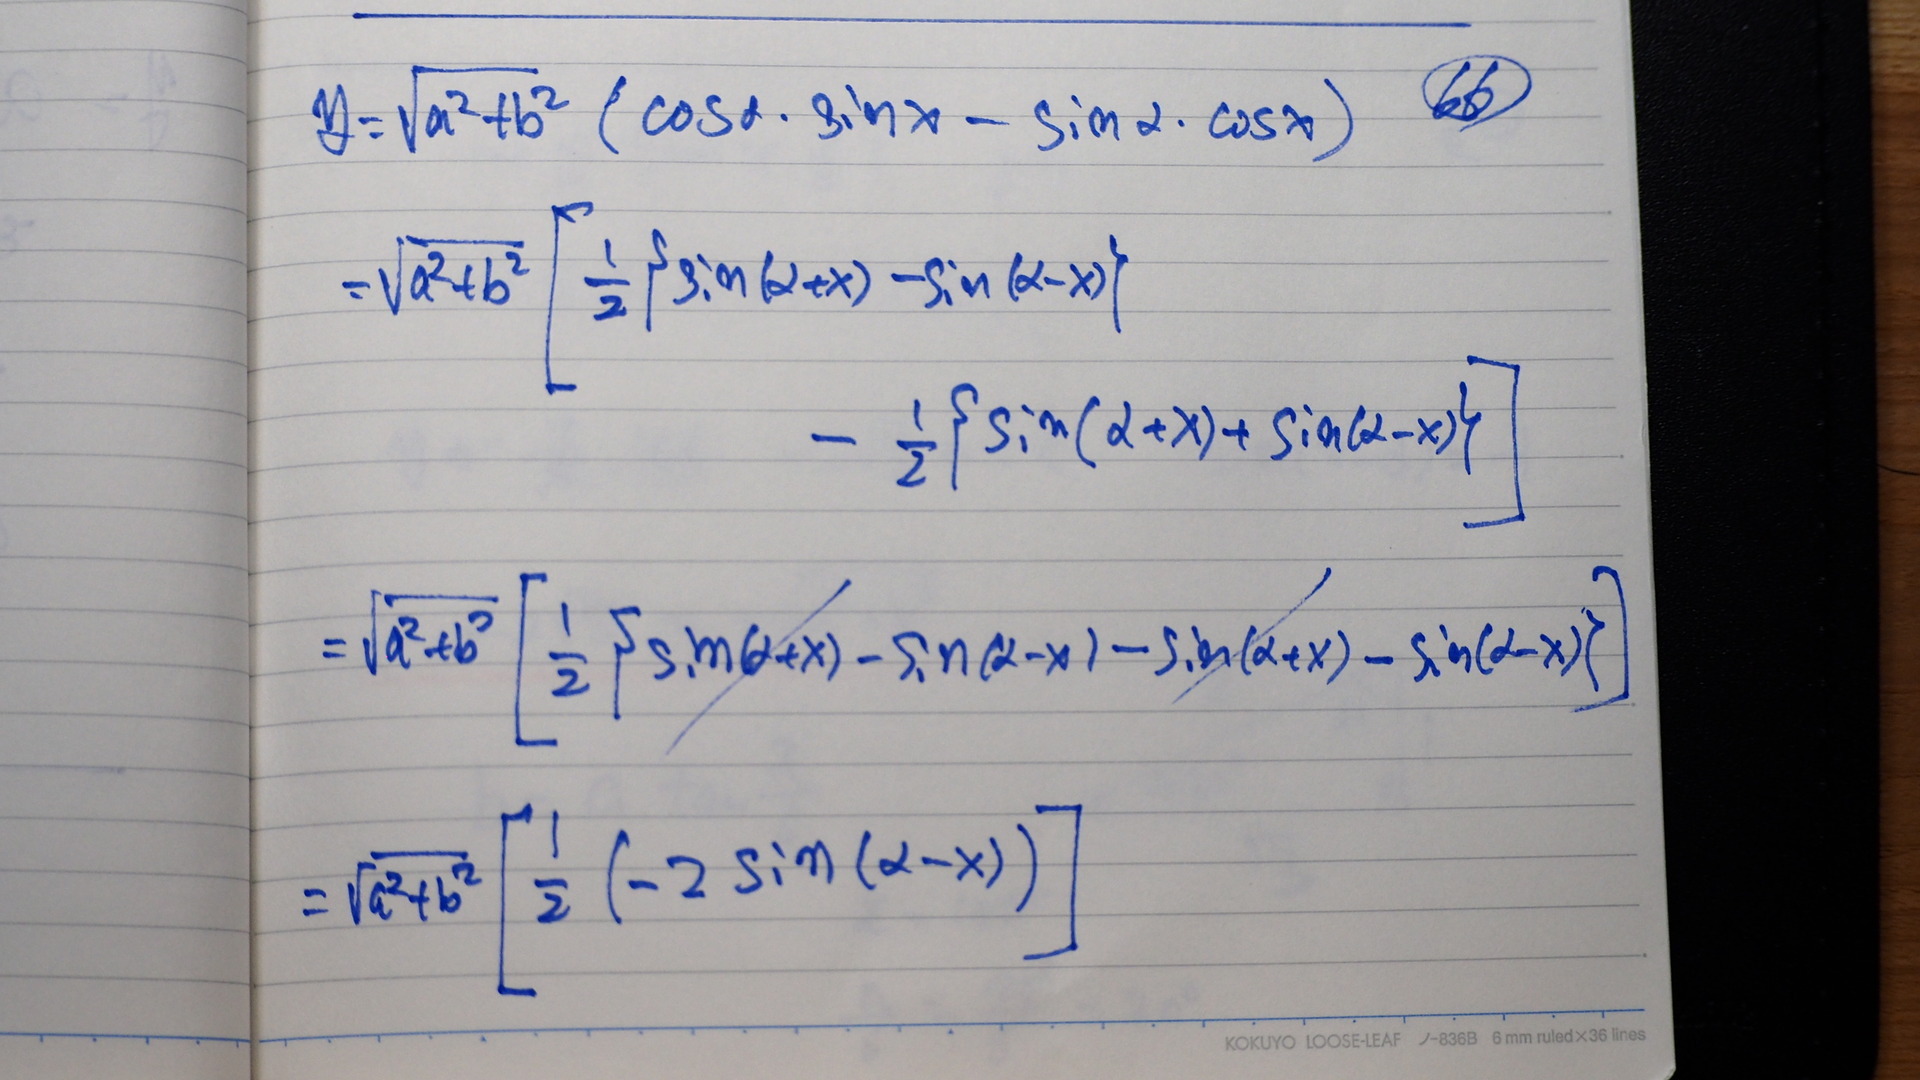 y = √a²+b² (cosα・sinx − sinα・cosx) 66
= √a²+b² [ 1/2 {sin(α+x) − sin(α−x)}
− 1/2 {sin(α+x) + sin(α−x)} ]
= √a²+b² [ 1/2 {sin(α+x) − sin(α−x) − sin(α+x) − sin(α−x)} ]
= √a²+b² [ 1/2 (−2 sin(α−x)) ]
KOKUYO LOOSE-LEAF ノ-836B 6 mm ruled×36 lines